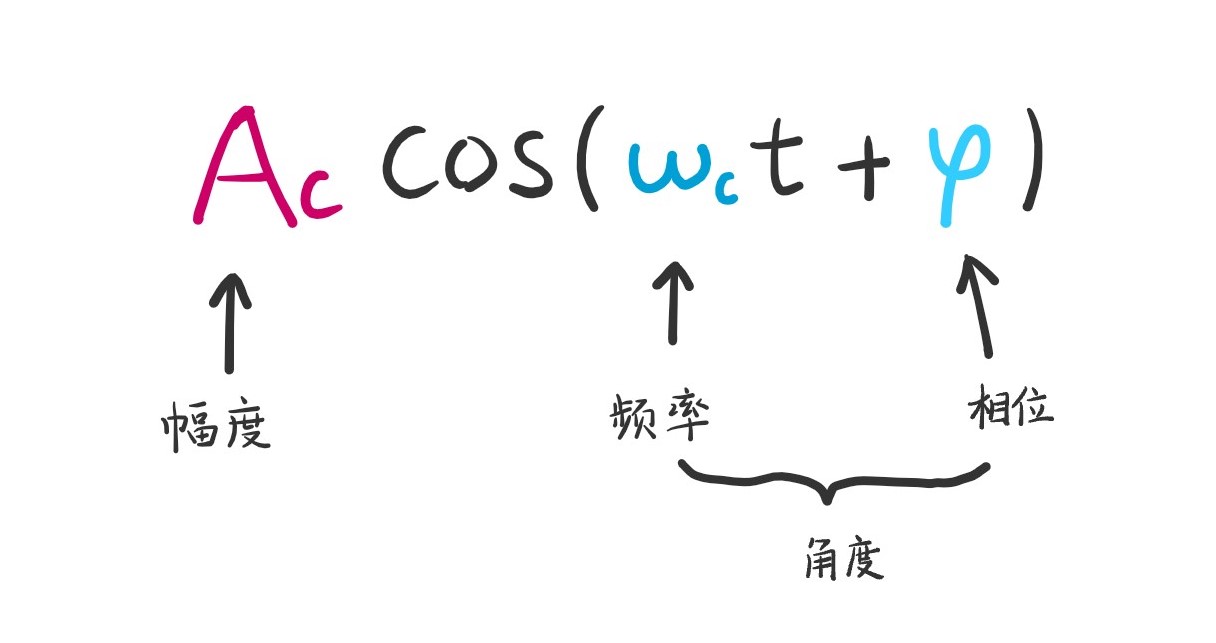 A_c cos(ω_c t + φ)
幅度
频率
相位
角度